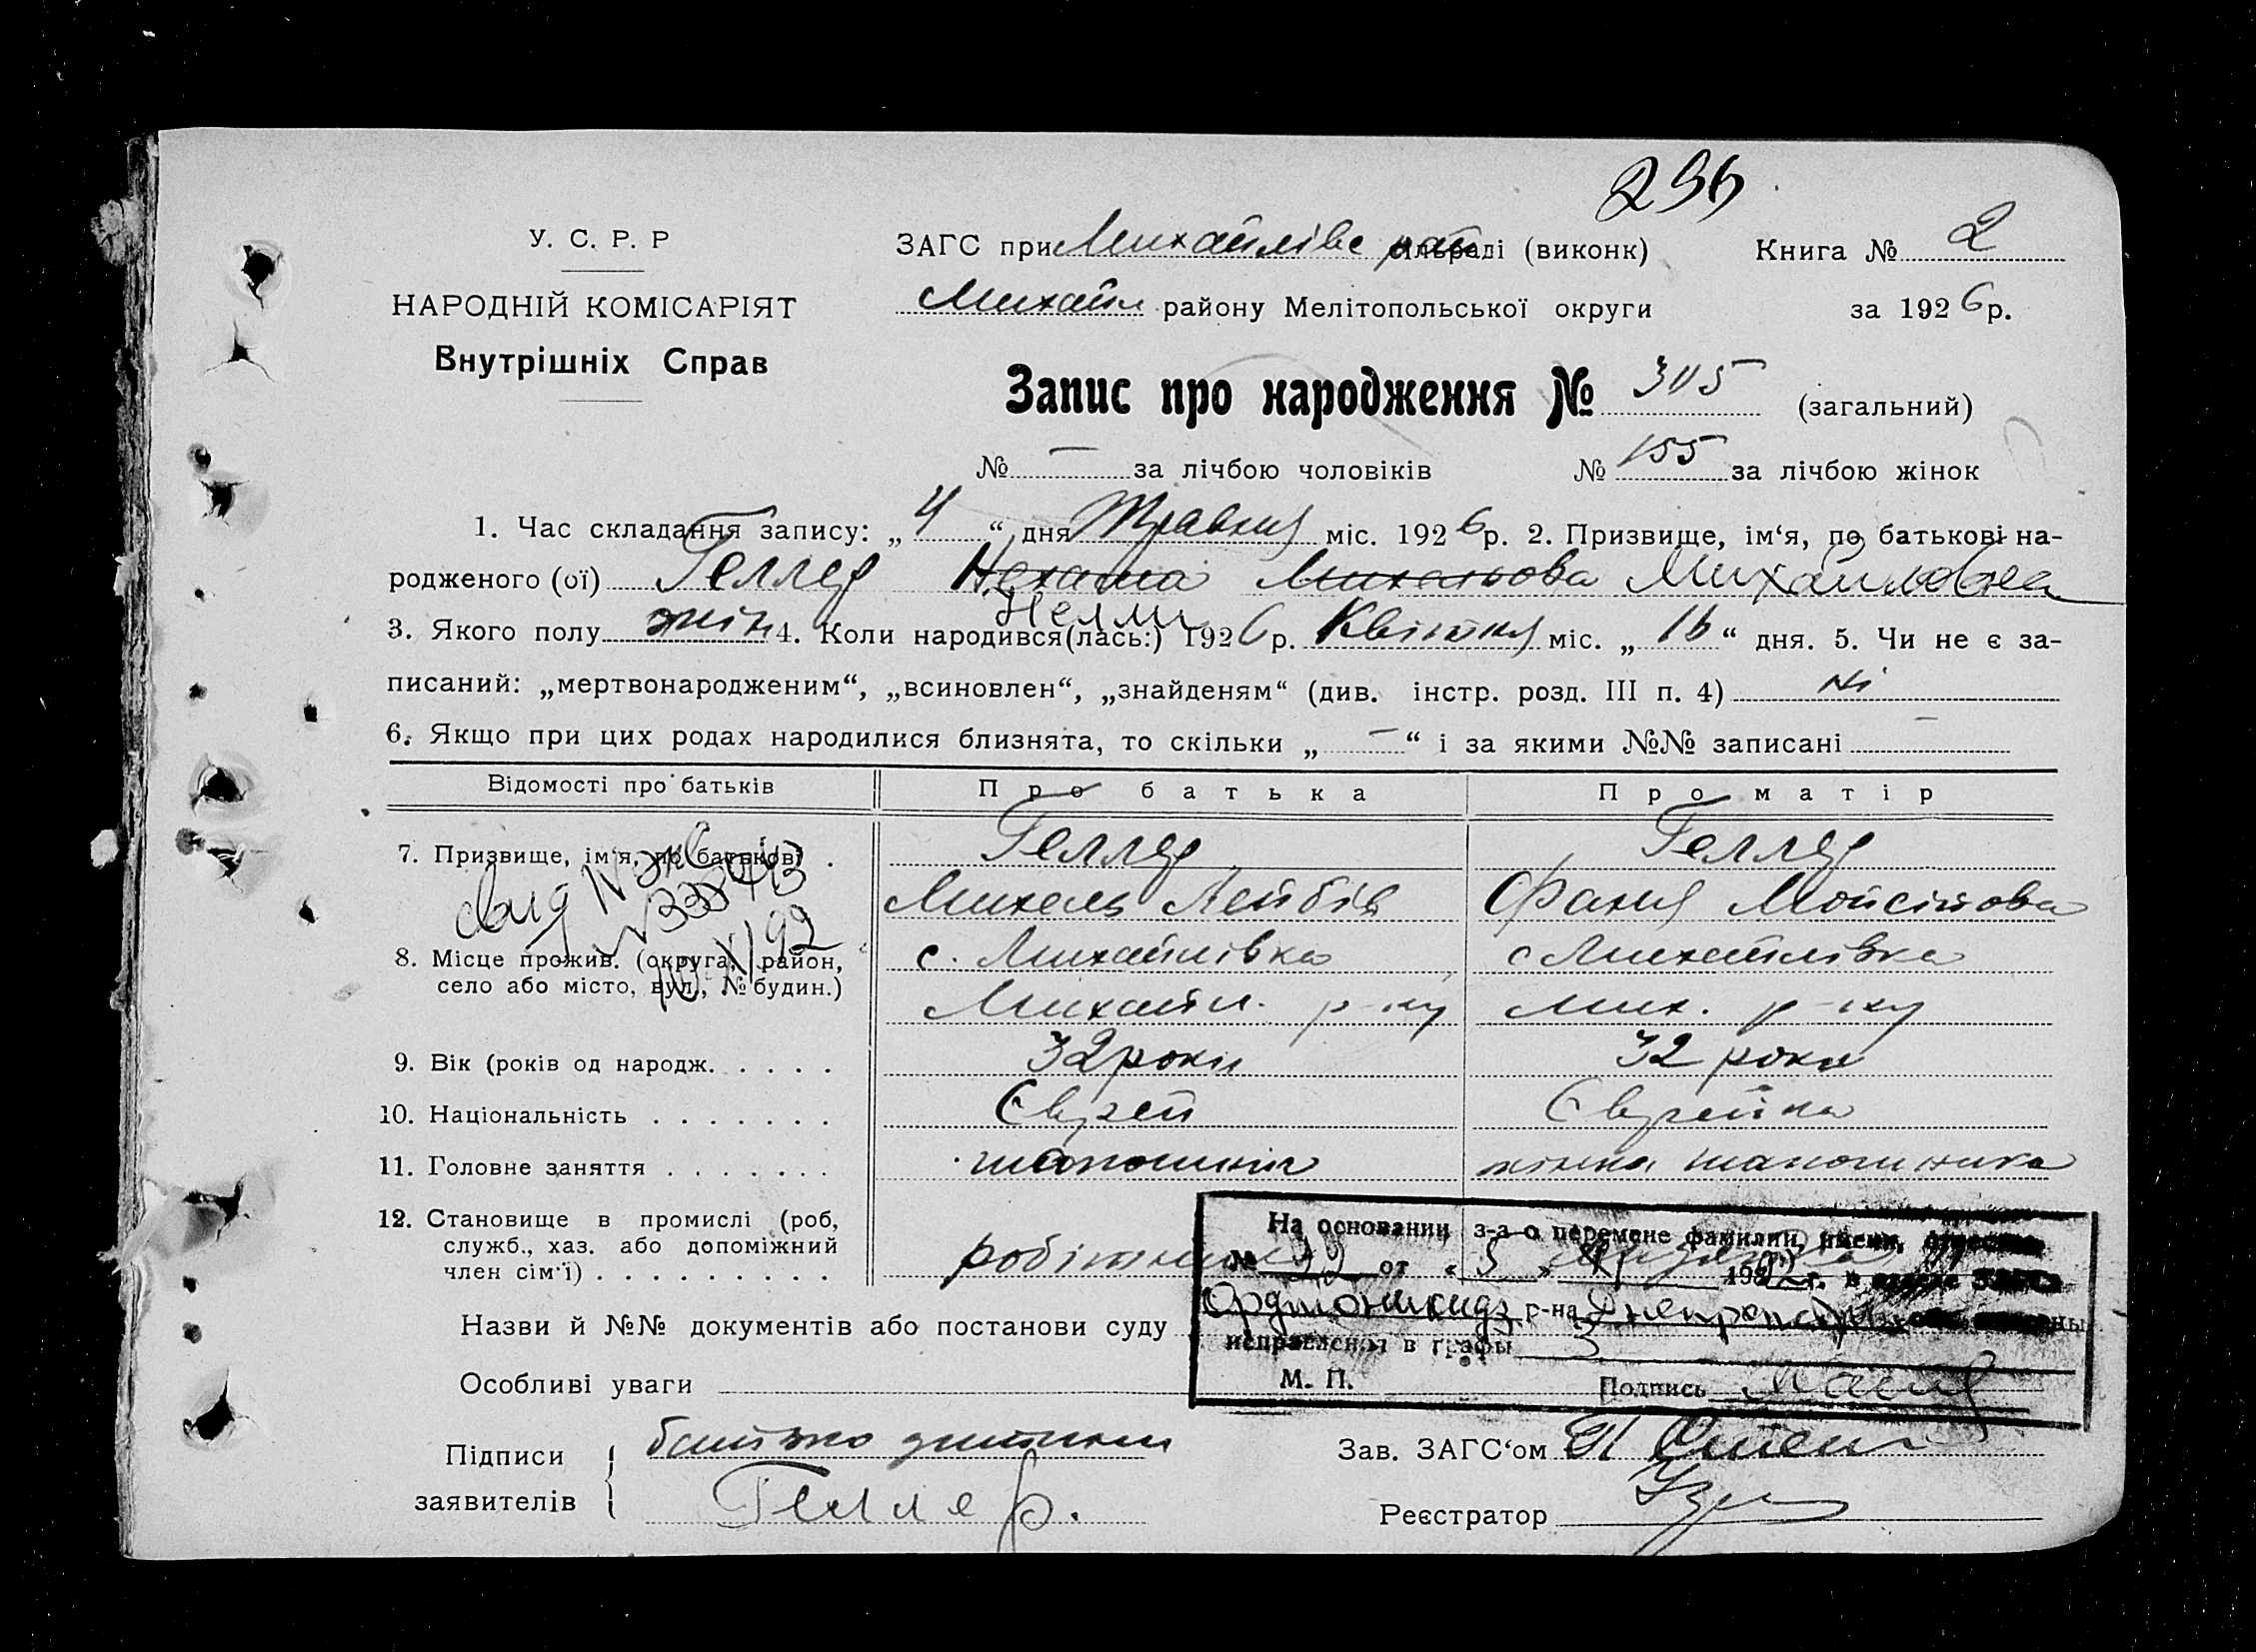 У. С. Р. Р
НАРОДНІЙ КОМІСАРІЯТ
Внутрішніх Справ
ЗАГС при Михайлівс рай сільраді (виконк)
Книга № 2
Михайл району Мелітопольської округи
за 1926 р.
Запис про народження № 305 (загальний)
№ — за лічбою чоловіків № 155 за лічбою жінок
1. Час складання запису: „4“ дня Травня міс. 1926 р. 2. Призвище, ім‘я, по батькові на-
родженого (ої) Геллер Нехама Михельова Михайловна
Нелли
3. Якого полу жін 4. Коли народився(лась:) 1926 р. Квітня міс. „16“ дня. 5. Чи не є за-
писаний: „мертвонародженим“, „всиновлен“, „знайденям“ (див. інстр. розд. III п. 4) ні
6. Якщо при цих родах народилися близнята, то скільки „—“ і за якими №№ записані —
Відомості про батьків Про батька Про матір
7. Призвище, ім‘я, по батькові . Геллер Геллер
Михель Лейбів Фаня Мойсійова
8. Місце прожив. (округа, район, с. Михайлівка с Михайлівка
село або місто, вул., № будин.) Михайл. р-ну Мих. р-ну
9. Вік (років од народж. . . . . . 32 роки 32 роки
10. Національність . . . . . . . Єврей Єврейка
11. Головне заняття . . . . . . . шапошник жінка шапошника
12. Становище в промислі (роб,
служб., хаз. або допоміжний робітник
член сім‘ї) . . . . . . . . . .
На основании з-а о перемене фамилии, имени,
№ 22 от « 5 » г.
Орджоникидз р-на
исправления в графы 3
М. П. Подпись
Назви й №№ документів або постанови суду
Особливі уваги
Підписи заявителів батько дитини
Геллер.
Зав. ЗАГС‘ом
Реєстратор